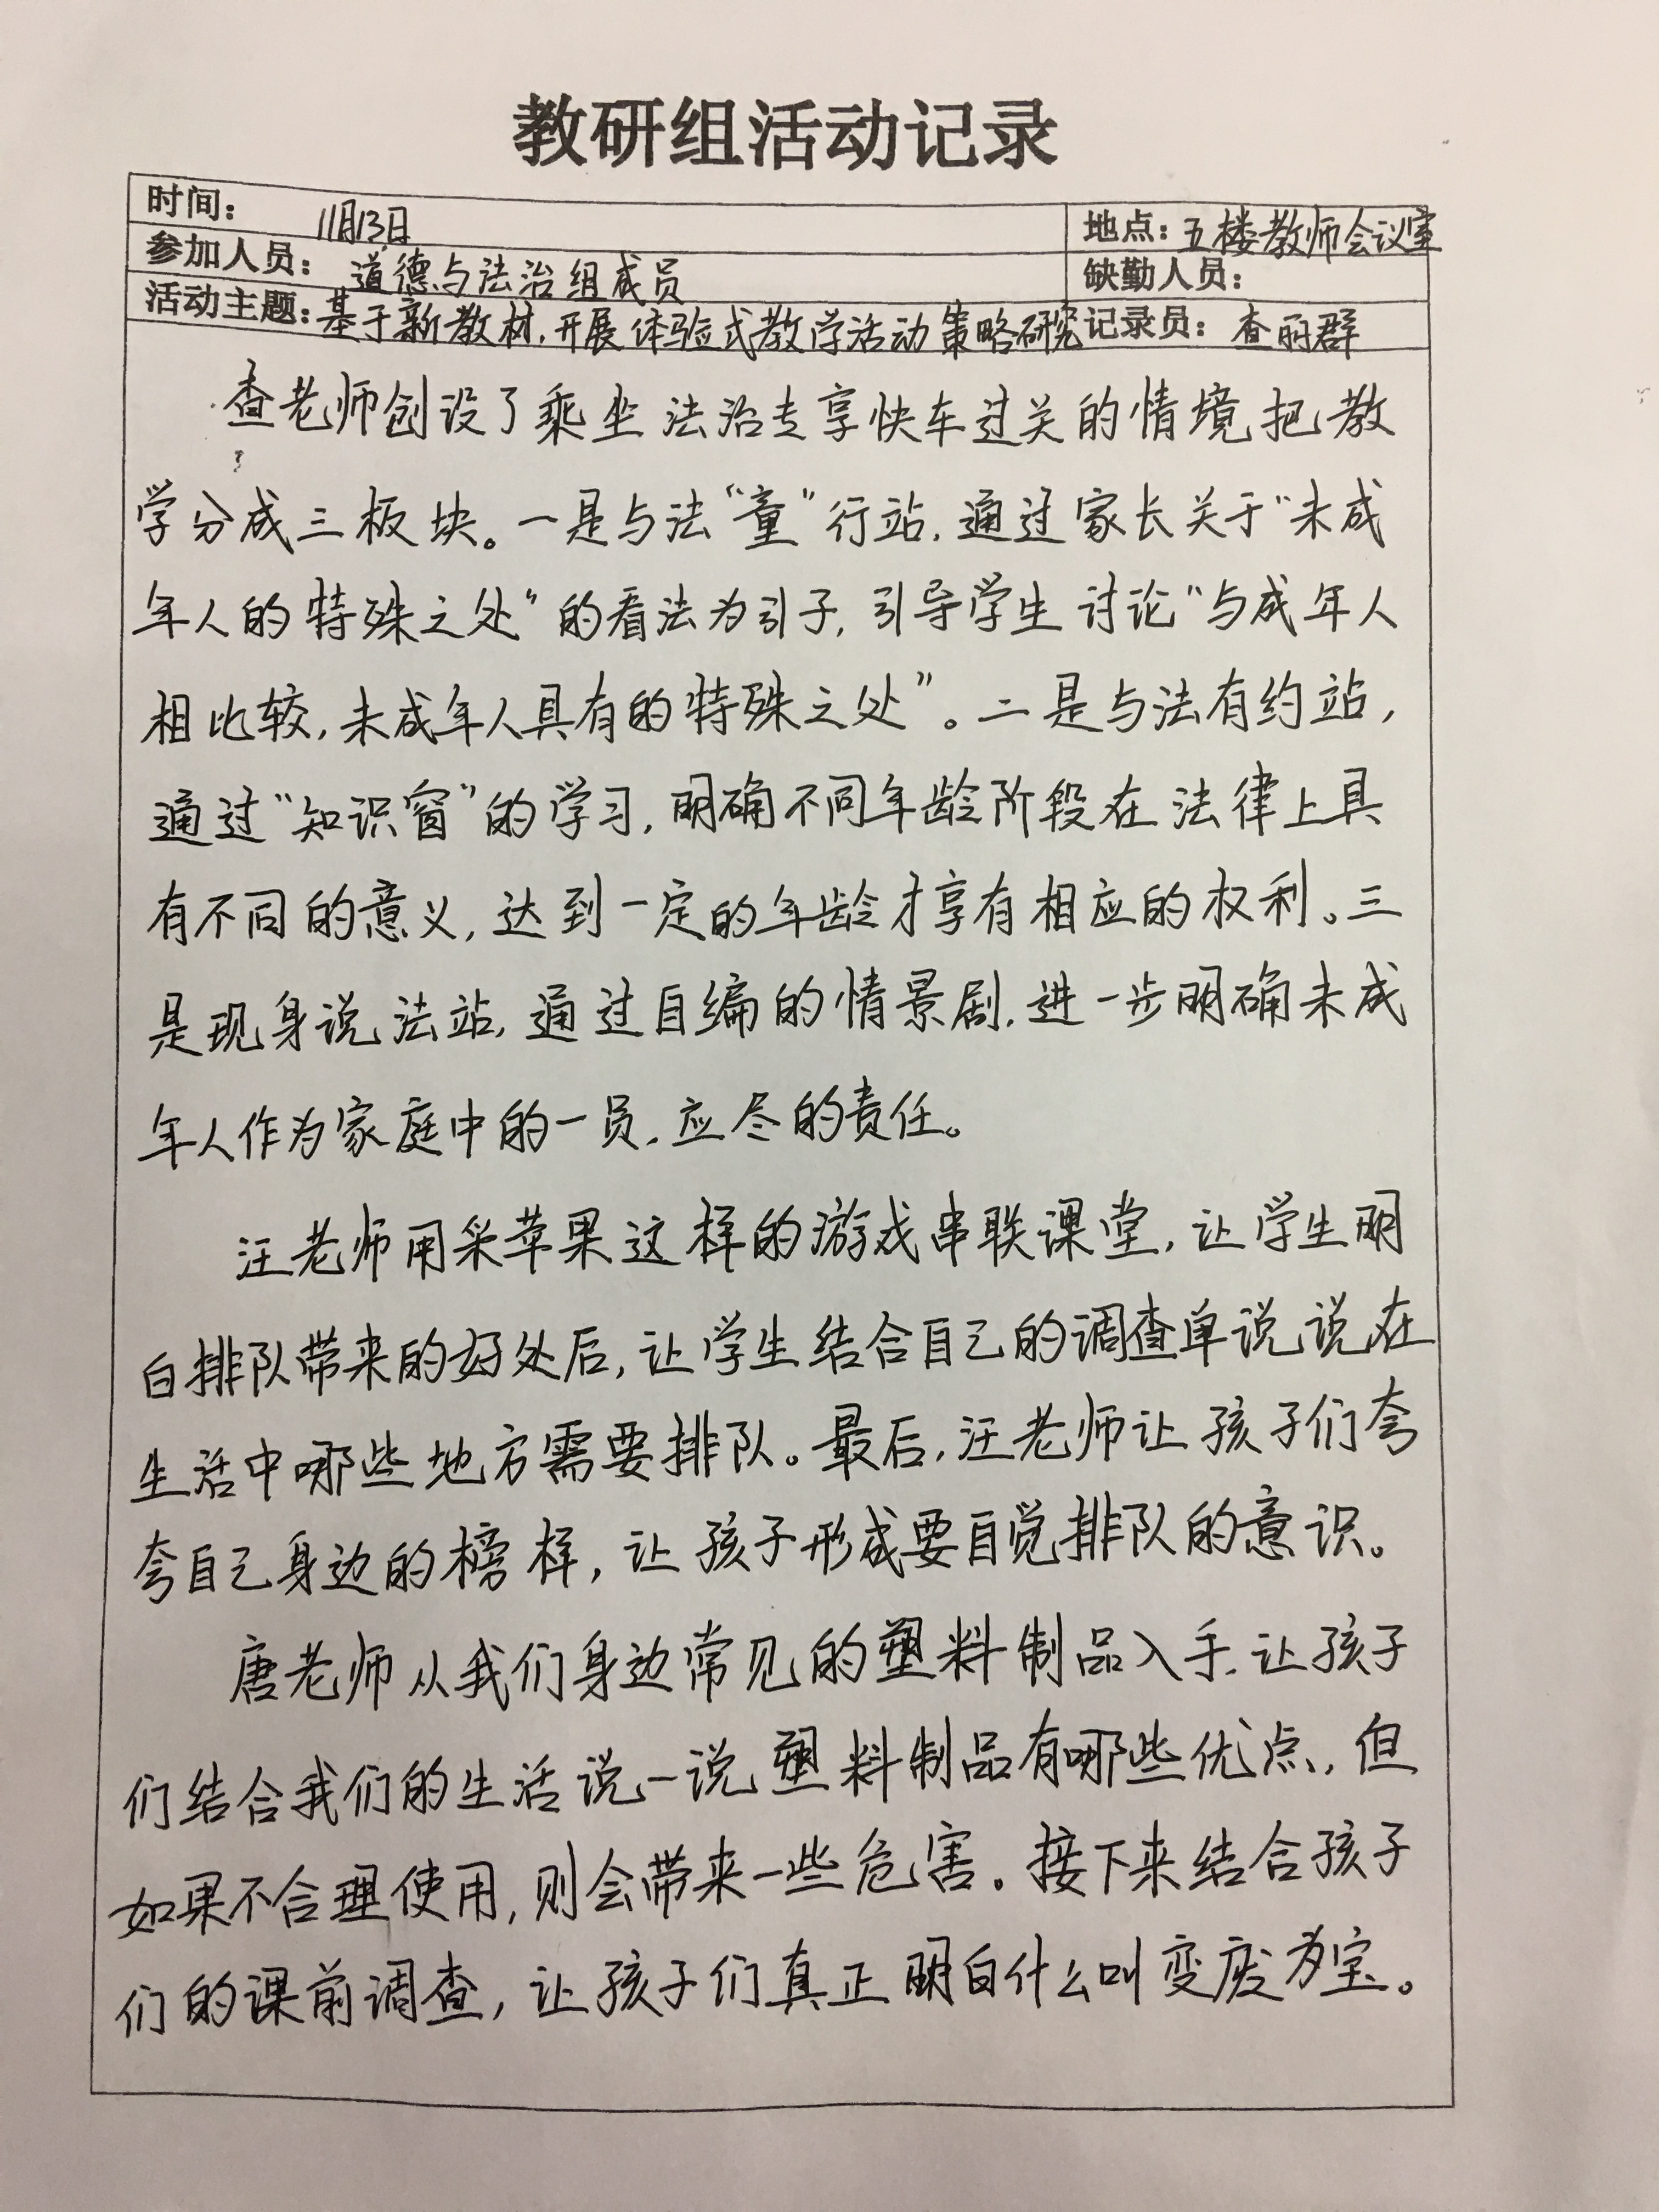 教研组活动记录
时间： 11月13日
地点：五楼教师会议室
参加人员： 道德与法治组成员
缺勤人员：
活动主题：基于新教材，开展体验式教学活动策略研究
记录员：查丽群
查老师创设了乘坐法治专享快车过关的情境把教
学分成三板块。一是与法“童”行站，通过家长关于“未成
年人的特殊之处”的看法为引子，引导学生讨论“与成年人
相比较，未成年人具有的特殊之处”。二是与法有约站，
通过“知识窗”的学习，明确不同年龄阶段在法律上具
有不同的意义，达到一定的年龄才享有相应的权利。三
是现身说法站，通过自编的情景剧，进一步明确未成
年人作为家庭中的一员，应尽的责任。
汪老师用采苹果这样的游戏串联课堂，让学生明
白排队带来的好处后，让学生结合自己的调查单说说在
生活中哪些地方需要排队。最后，汪老师让孩子们夸
夸自己身边的榜样，让孩子形成要自觉排队的意识。
唐老师从我们身边常见的塑料制品入手，让孩子
们结合我们的生活说一说塑料制品有哪些优点，但
如果不合理使用，则会带来一些危害。接下来结合孩子
们的课前调查，让孩子们真正明白什么叫变废为宝。